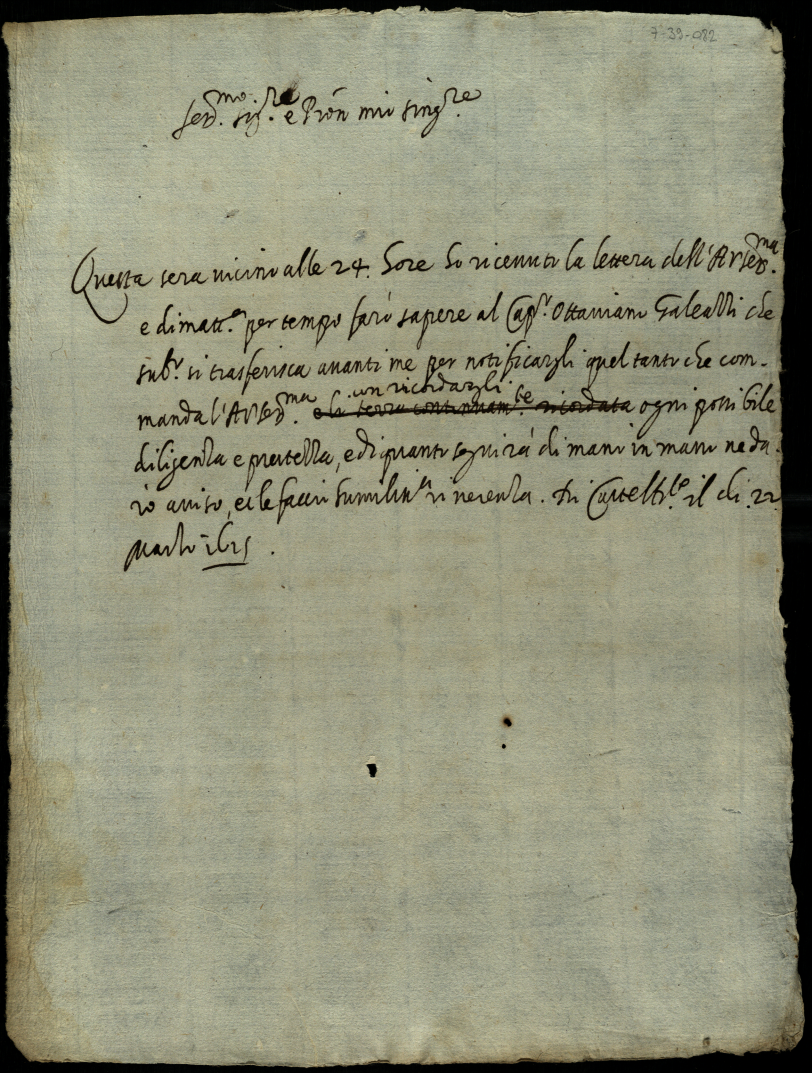 7-39-982
Ser.mo Sig.re e Pron mio sing.re
Questa sera vicino alle 24. hore ho ricevuto la lettera dell'A V Ser.ma
e dimatt.a per tempo farò sapere al Cap.o Ottaviano Galeazzi che
sub.o si trasferisca avanti me per notificargli quel tanto che com-
manda l'A V Ser.ma con ricordargli e li terrà continuam.te ricordata ogni possibile
diligenza e prestezza, e di quanto seguirà di mano in mano ne da-
rò aviso, et le faccio humiliss.a riverenza. Di il di 22
Marzo